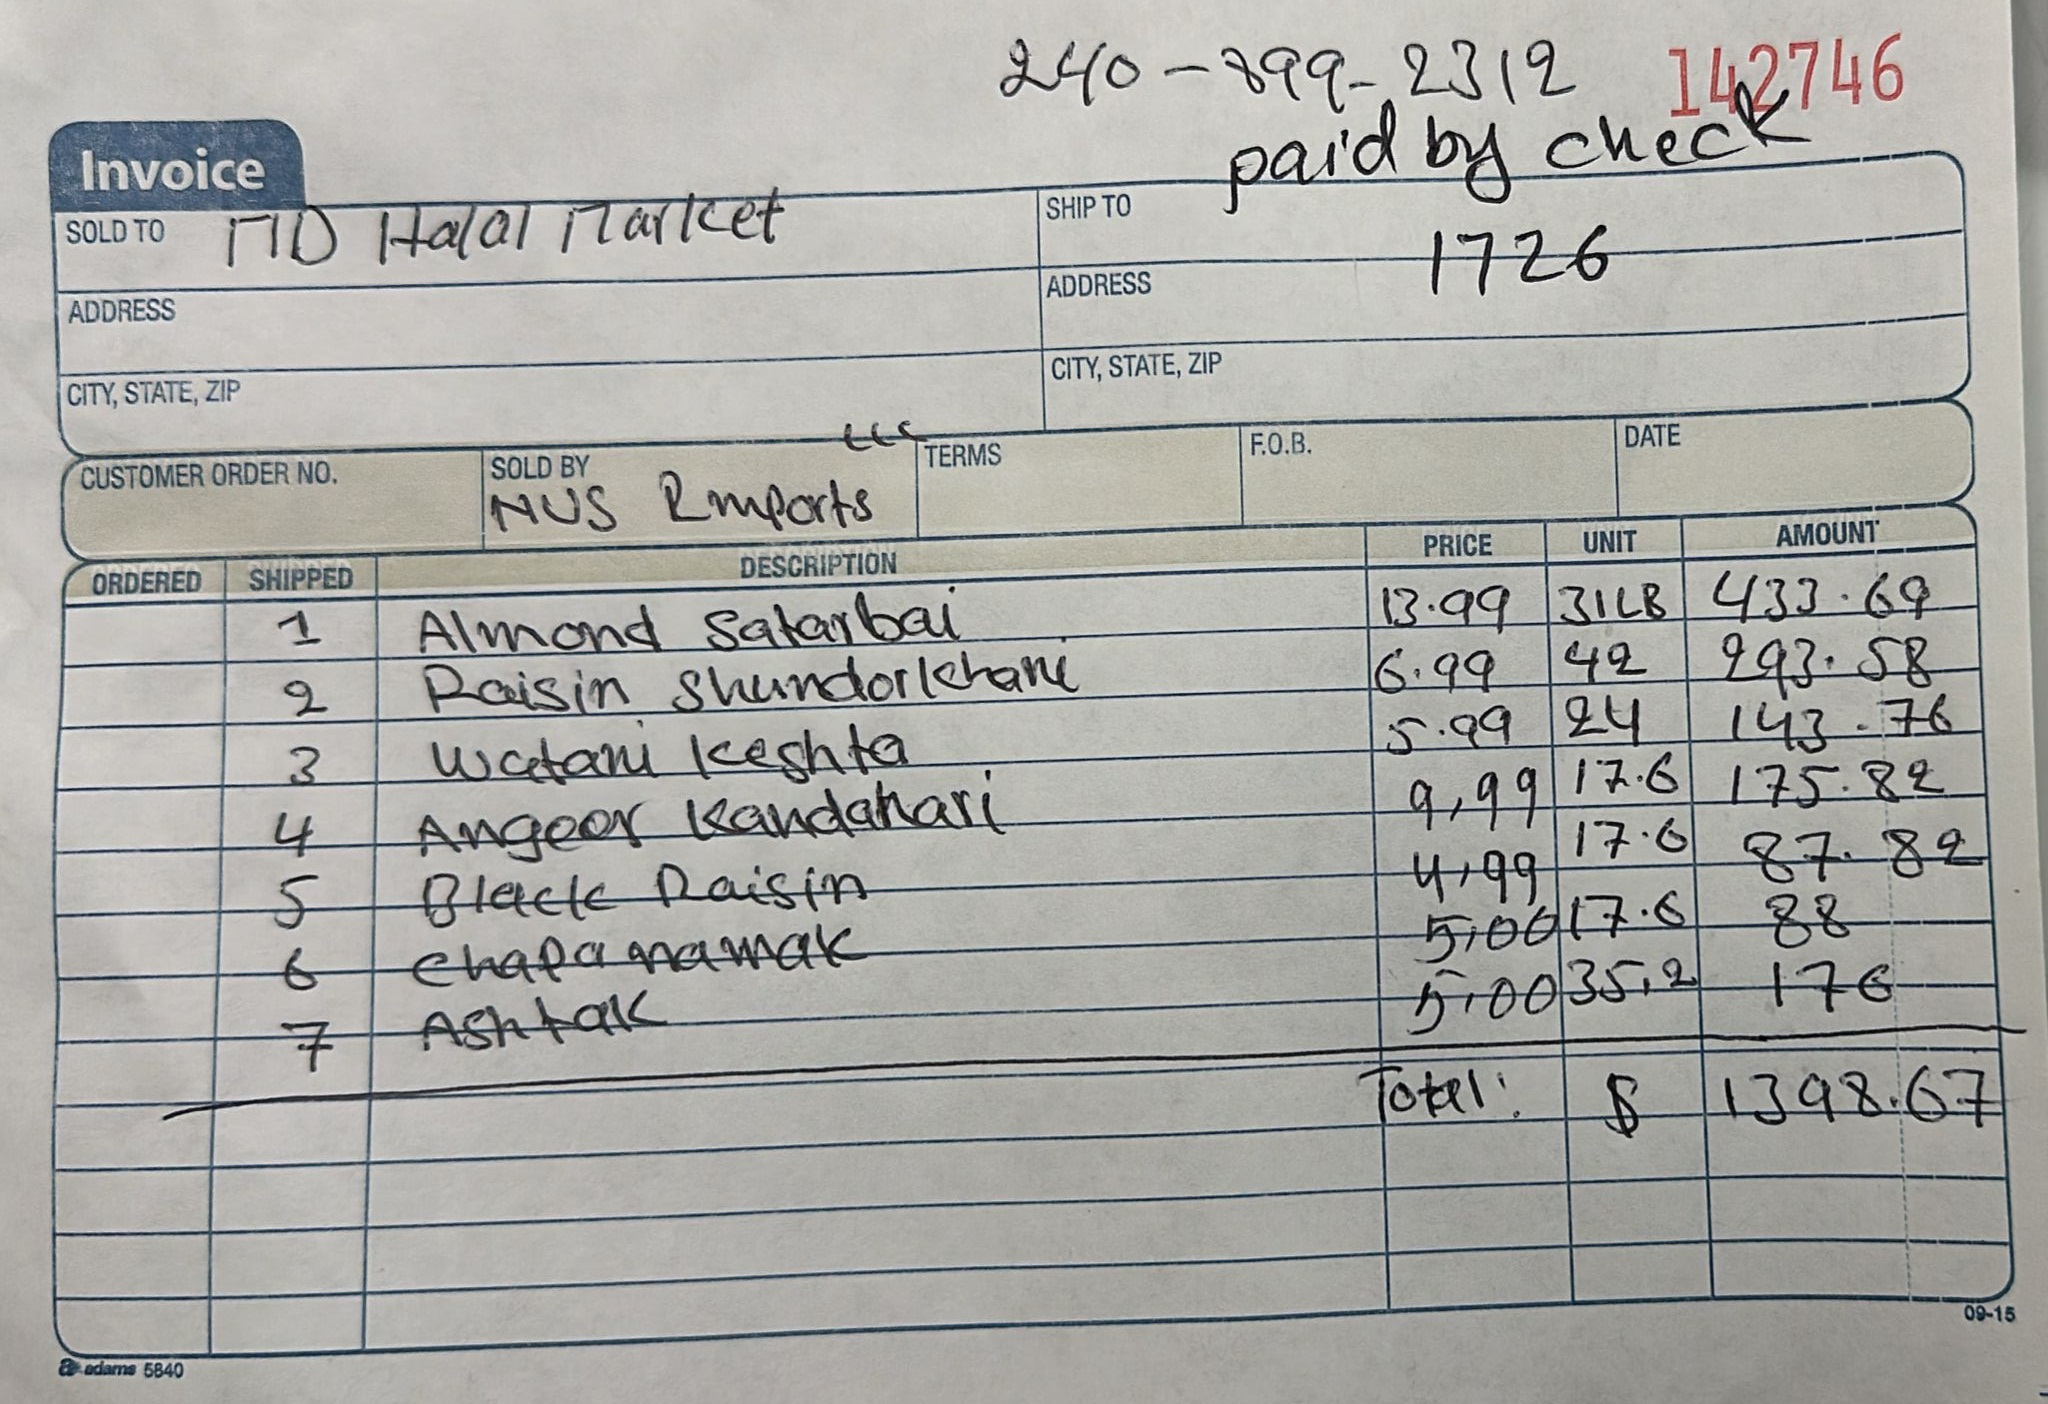 240-899-2312 142746
paid by check
Invoice
SOLD TO MD Halal Market
SHIP TO
1726
ADDRESS
ADDRESS
CITY, STATE, ZIP
CITY, STATE, ZIP
CUSTOMER ORDER NO. SOLD BY TERMS F.O.B. DATE
LLC
NUS Imports
ORDERED SHIPPED DESCRIPTION PRICE UNIT AMOUNT
1 Almond Satarbai 13.99 31LB 433.69
2 Raisin Shundorkhani 6.99 42 293.58
3 Watani Keshta 5.99 24 143.76
4 Angoor Kandahari 9,99 17.6 175.82
5 Black Raisin 4,99 17.6 87.82
6 Chapa namak 5,00 17.6 88
7 Ashtak 5,00 35,2 176
Total: $ 1398.67
09-15
adams 5840